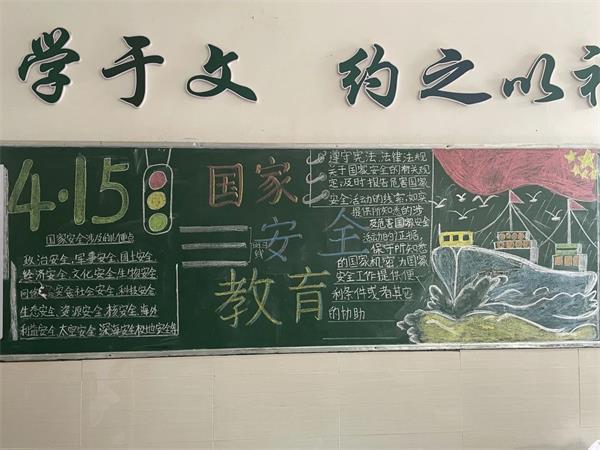 学于文 约之以礼
4·15
国家
安全
教育
国家安全涉及的
政治安全、军事安全、国土安全、
经济安全、文化安全、生物安全
安全、社会安全、科技安全
生态安全、资源安全、核安全、海外
利益安全、太空安全、深海安全、极地安全等
遵守宪法、法律法规
关于国家安全的有关规
定,及时报告危害国家
安全活动的线索,如实
提供所知悉的涉
及危害国家安全
活动的证据
保守所知悉
的国家机密,为国家
安全工作提供便
利条件或者其它
的协助